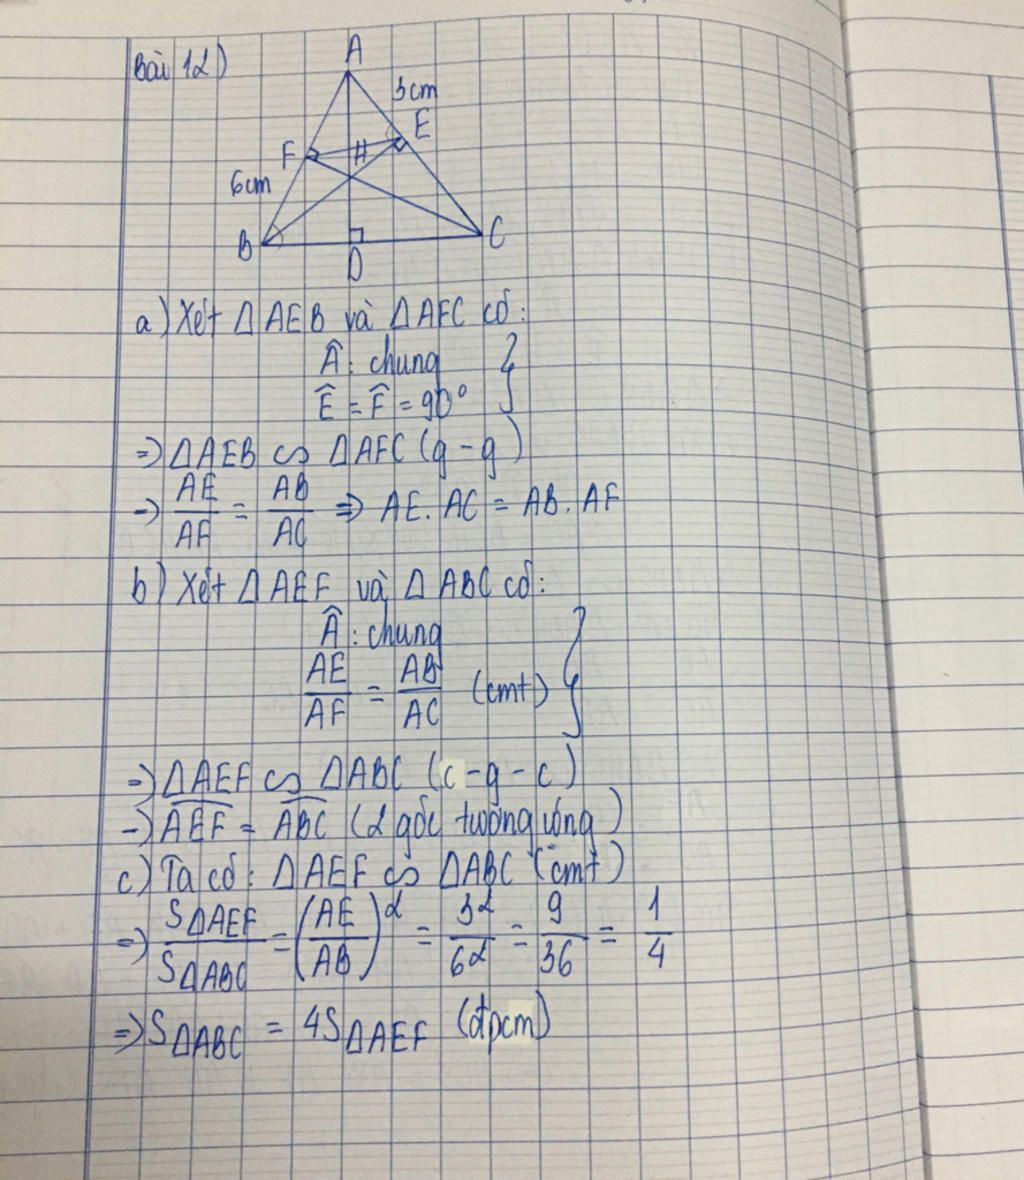 Bài 12)
A
3cm
E
F
H
6cm
B
C
D
a) Xét ΔAEB và ΔAFC có:
Â: chung
Ê = F̂ = 90°
=> ΔAEB ∽ ΔAFC (g-g)
=> AE/AF = AB/AC => AE. AC = AB. AF
b) Xét ΔAEF và ΔABC có:
Â: chung
AE/AF = AB/AC (cmt)
=> ΔAEF ∽ ΔABC (c-g-c)
=> AEF = ABC (2 góc tương ứng)
c) Ta có: ΔAEF ∽ ΔABC (cmt)
=> SΔAEF/SΔABC = (AE/AB)² = 3²/6² = 9/36 = 1/4
=> SΔABC = 4SΔAEF (đpcm)